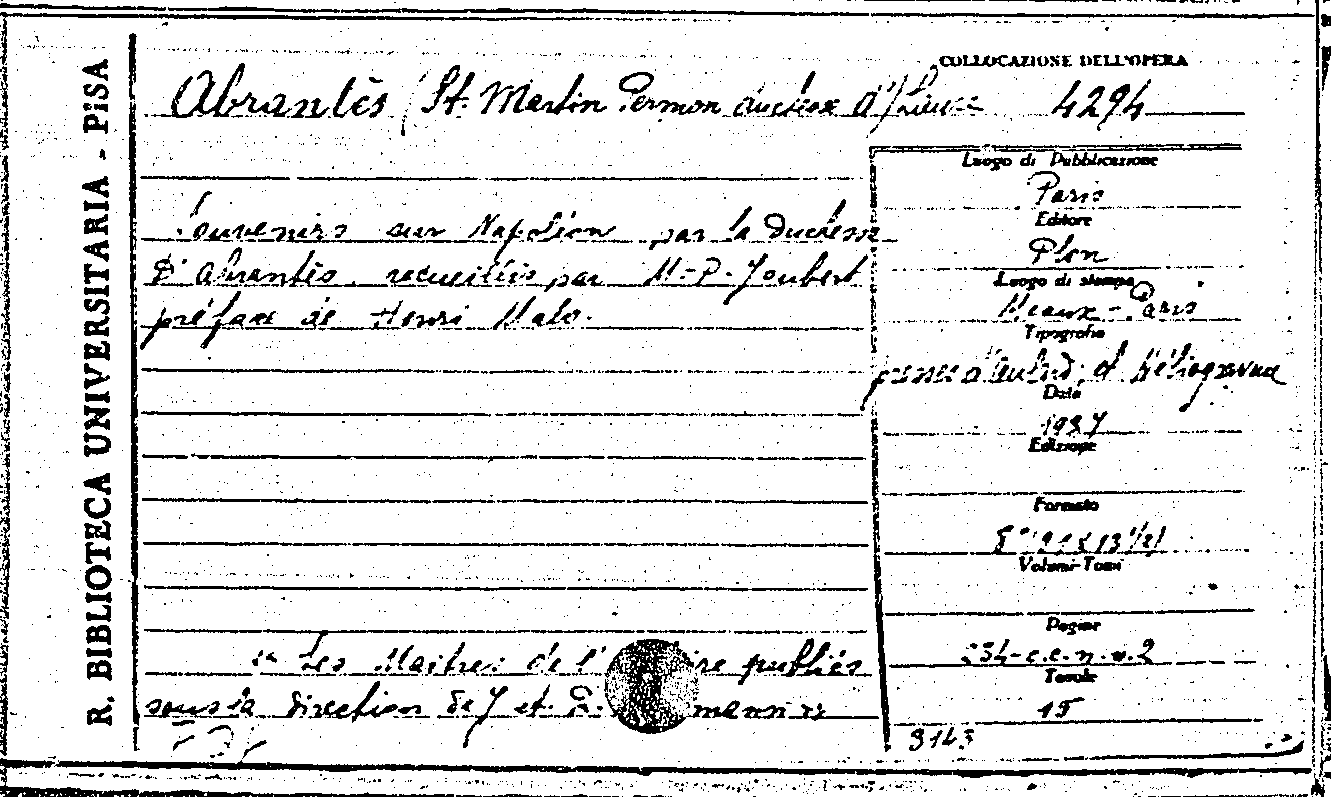 R. BIBLIOTECA UNIVERSITARIA - PISA
COLLOCAZIONE DELL'OPERA
Abrantès (St. Martin Permon duchesse d') Laure 4294
Souvenirs sur Napoléon par la Duchesse
D'Abrantès recueillis par M-P-Joubert
préface de Henri Malo.
Luogo di Pubblicazione
Paris
Editore
Plon
Luogo di stampa
Meaux-Paris
Tipografia
presses d' et héliogravure
Data
1937
Edizione
Formato
8° 13 1/2)
Volumi-Tomi
Pagine
334-c.c.n.n.2
Tavole
15
"Les Maitres de l' re publiés
sous la direction de J et R. mann"
9143